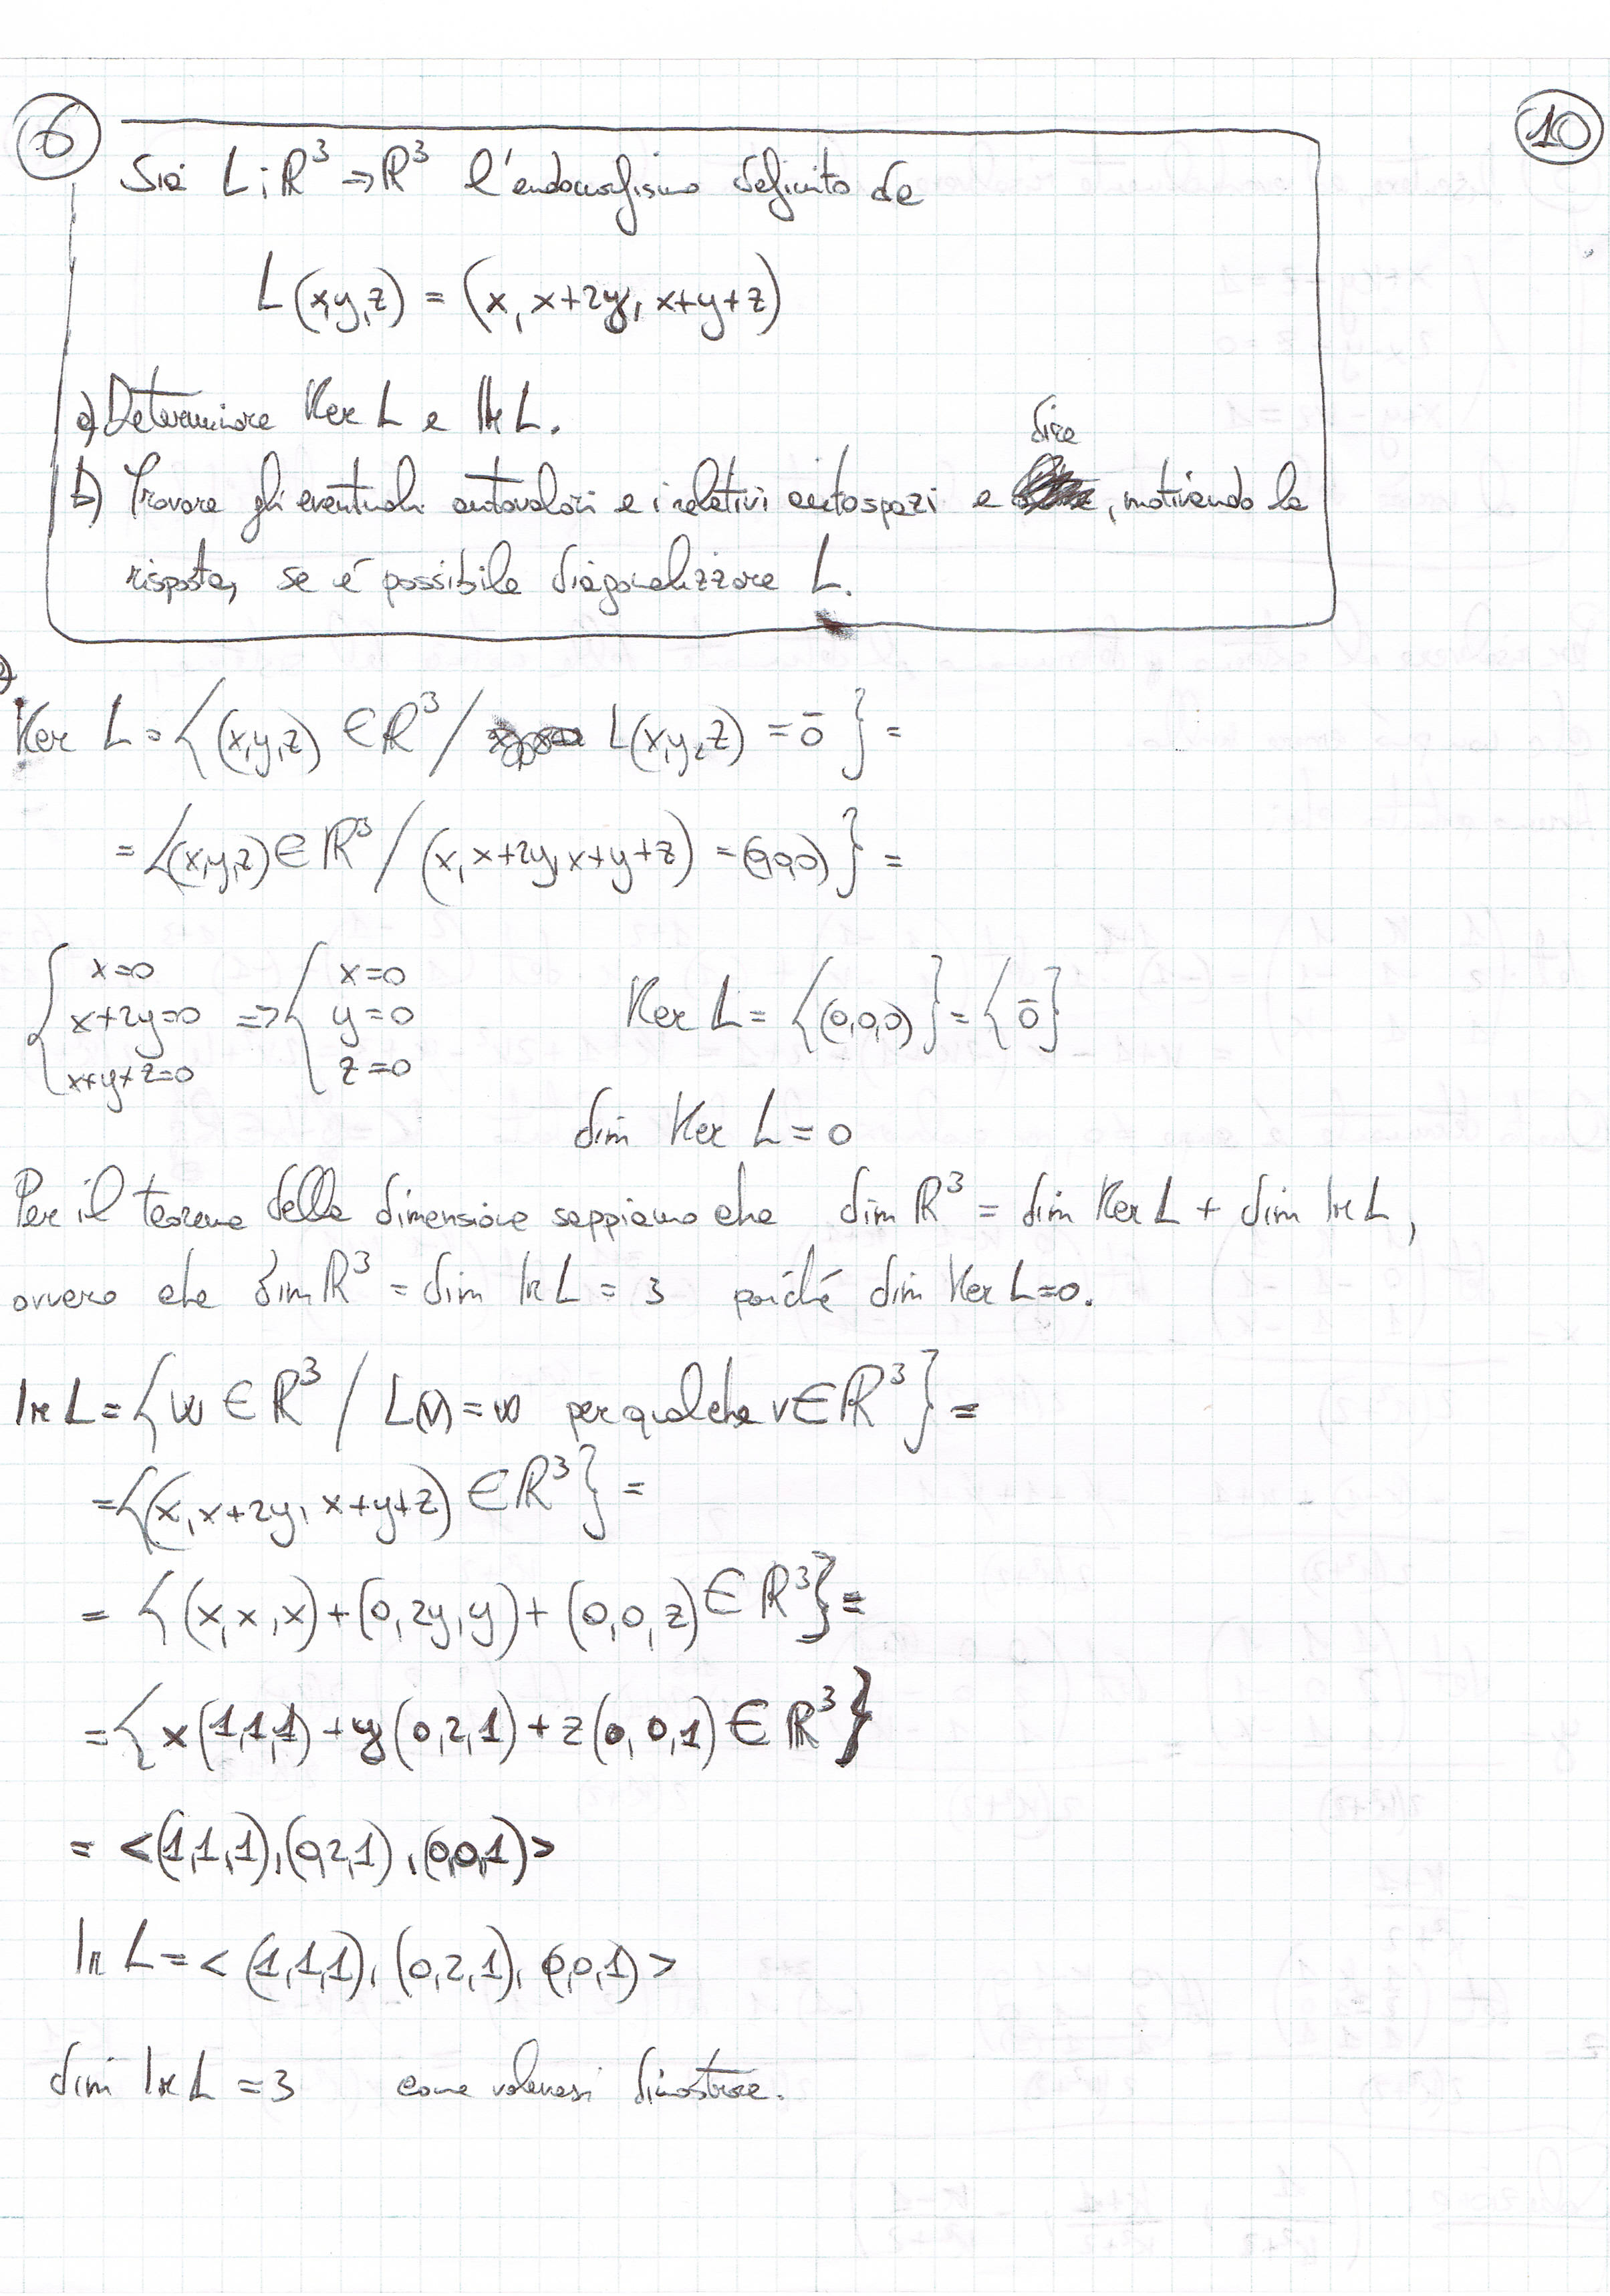 6
10
Sia L: ℝ³ → ℝ³ l'endomorfismo definito da
L(x,y,z) = (x, x+2y, x+y+z)
a) Determinare Ker L e Im L.
b) Trovare gli eventuali autovalori e i relativi autospazi e dire, motivando la
risposta, se è possibile diagonalizzare L.
a)
Ker L = {(x,y,z) ∈ ℝ³ / L(x,y,z) = 0̄ } =
= {(x,y,z) ∈ ℝ³ / (x, x+2y, x+y+z) = (0,0,0) } =
{ x=0 x+2y=0 x+y+z=0 => { x=0 y=0 z=0 Ker L = {(0,0,0)} = {0̄}
dim Ker L = 0
Per il teorema della dimensione sappiamo che dim ℝ³ = dim Ker L + dim Im L,
ovvero che dim ℝ³ = dim Im L = 3 poiché dim Ker L=0.
Im L = { w ∈ ℝ³ / L(v) = w per qualche v ∈ ℝ³ } =
= {(x, x+2y, x+y+z) ∈ ℝ³ } =
= { (x,x,x) + (0,2y,y) + (0,0,z) ∈ ℝ³ } =
= { x(1,1,1) + y(0,2,1) + z(0,0,1) ∈ ℝ³ }
= <(1,1,1),(0,2,1),(0,0,1)>
Im L = < (1,1,1), (0,2,1), (0,0,1) >
dim Im L = 3 come volevasi dimostrare.